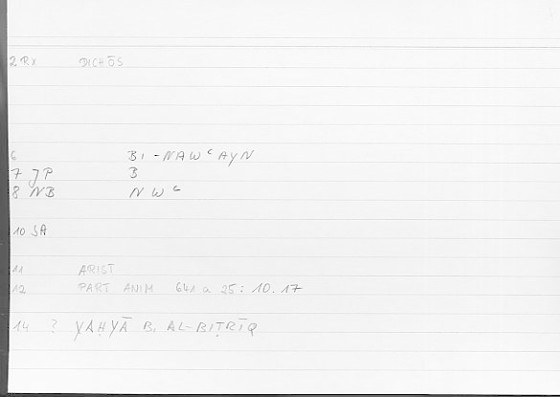 2 RX DICHŌS
6 BI-NAWʿAYN
7 JP B
8 NB NWʿ
10 SA
11 ARIST
12 PART ANIM 641 a 25: 10.17
14 ? YAḤYĀ B. AL-BIṬRĪQ